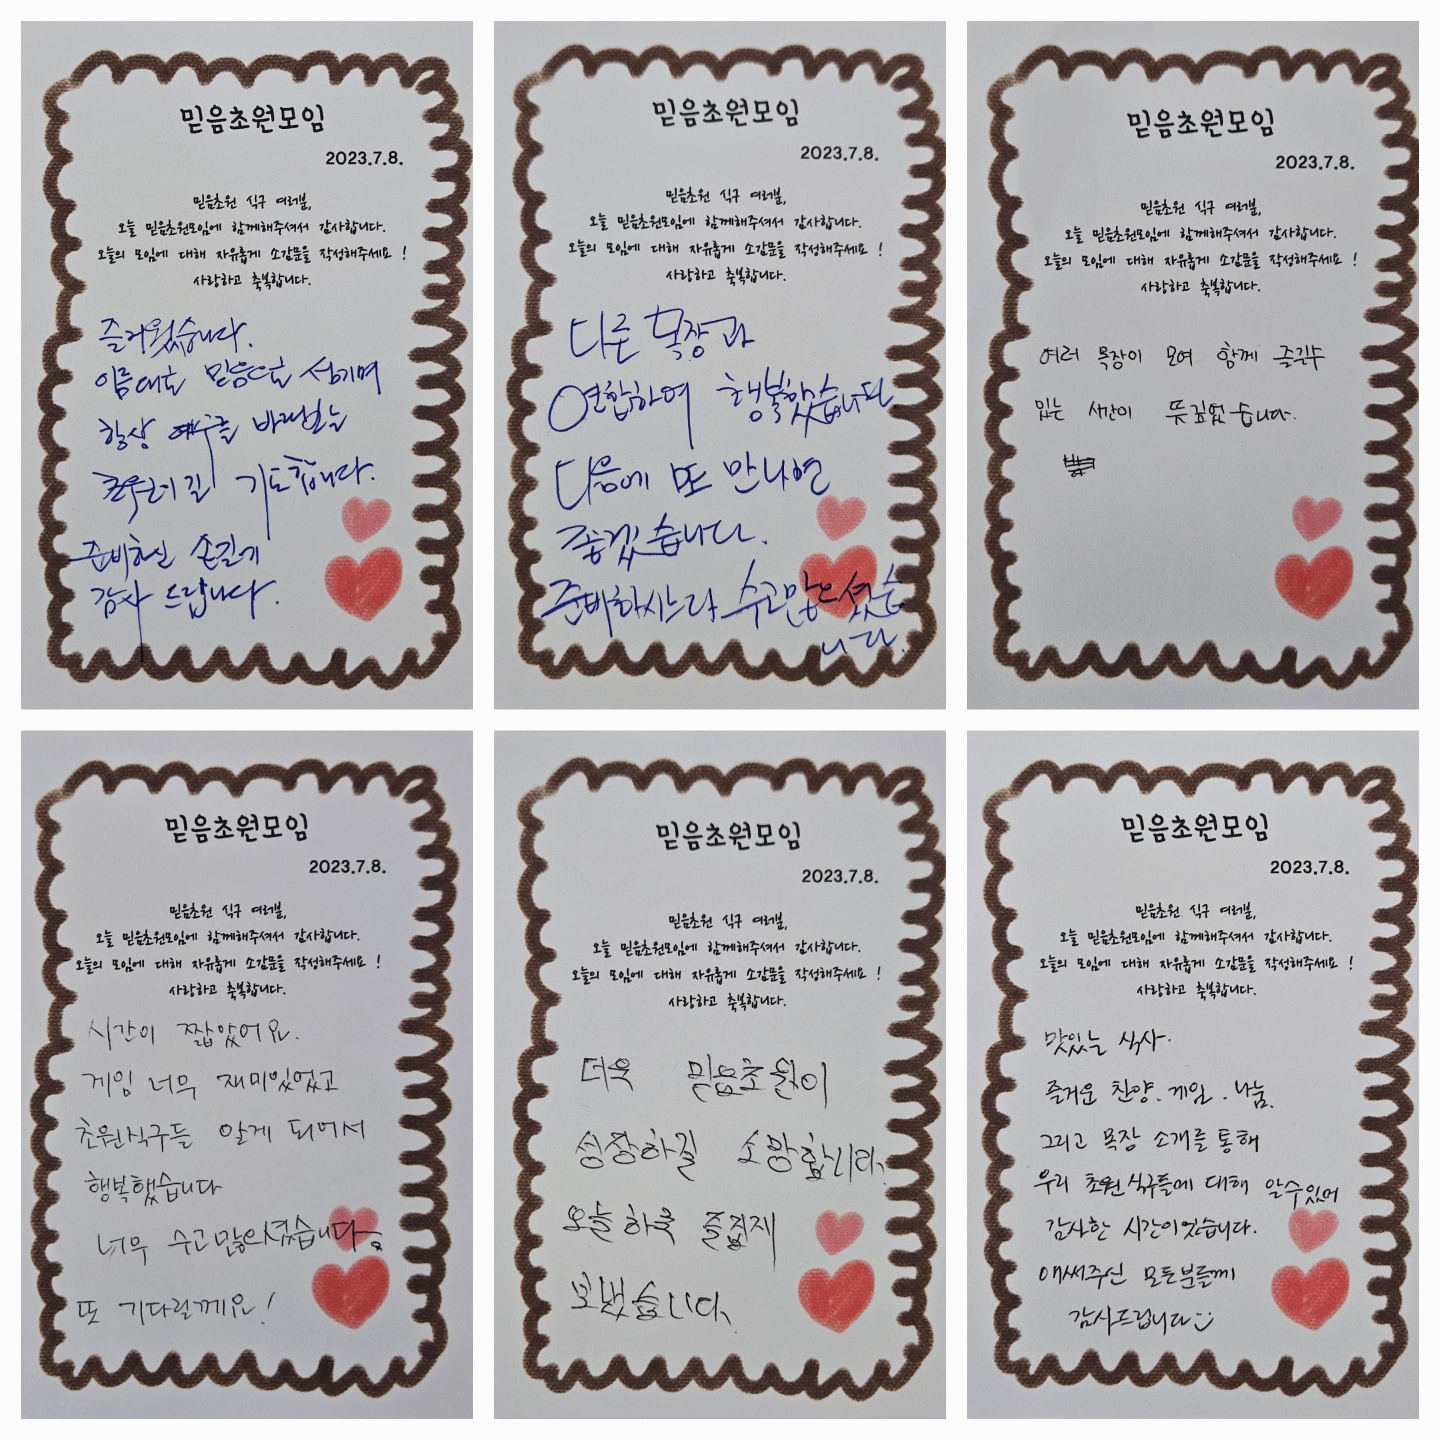 믿음초원모임
2023.7.8.
믿음초원 식구 여러분,
오늘 믿음초원모임에 함께해주셔서 감사합니다.
오늘의 모임에 대해 자유롭게 소감문을 작성해주세요 !
사랑하고 축복합니다.
즐거웠습니다.
이름대로 믿음으로 섬기며
항상 예수를 바라보는
초원이길 기도합니다.
준비하신 손길에
감사 드립니다.
믿음초원모임
2023.7.8.
믿음초원 식구 여러분,
오늘 믿음초원모임에 함께해주셔서 감사합니다.
오늘의 모임에 대해 자유롭게 소감문을 작성해주세요 !
사랑하고 축복합니다.
다른 목장과
연합하여 행복했습니다
다음에 또 만나면
좋겠습니다.
준비하시느라 수고많으셨습
니다.
믿음초원모임
2023.7.8.
믿음초원 식구 여러분,
오늘 믿음초원모임에 함께해주셔서 감사합니다.
오늘의 모임에 대해 자유롭게 소감문을 작성해주세요 !
사랑하고 축복합니다.
여러 목장이 모여 함께 즐길수
있는 시간이 뜻깊었습니다.
믿음초원모임
2023.7.8.
믿음초원 식구 여러분,
오늘 믿음초원모임에 함께해주셔서 감사합니다.
오늘의 모임에 대해 자유롭게 소감문을 작성해주세요 !
사랑하고 축복합니다.
시간이 짧았어요.
게임 너무 재미있었고
초원식구들 알게 되어서
행복했습니다
너무 수고많으셨습니다.
또 기다릴께요!
믿음초원모임
2023.7.8.
믿음초원 식구 여러분,
오늘 믿음초원모임에 함께해주셔서 감사합니다.
오늘의 모임에 대해 자유롭게 소감문을 작성해주세요 !
사랑하고 축복합니다.
더욱 믿음초원이
성장하길 소망합니다.
오늘하루 즐겁게
보냈습니다.
믿음초원모임
2023.7.8.
믿음초원 식구 여러분,
오늘 믿음초원모임에 함께해주셔서 감사합니다.
오늘의 모임에 대해 자유롭게 소감문을 작성해주세요 !
사랑하고 축복합니다.
맛있는 식사.
즐거운 찬양. 게임. 나눔.
그리고 목장 소개를 통해
우리 초원식구들에 대해 알수있어
감사한 시간이었습니다.
애써주신 모든분들께
감사드립니다